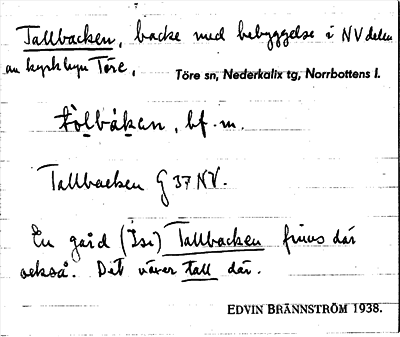 Tallbacken, backe med bebyggelse i NV delen
av kyrkbyn Töre,
Töre sn, Nederkalix tg, Norrbottens l.
tòlbàkan, bf. m.
Tallbacken G 37 NV.
En gård (Isr) Tallbacken finns där
också. Det växer tall där.
EDVIN BRÄNNSTRÖM 1938.